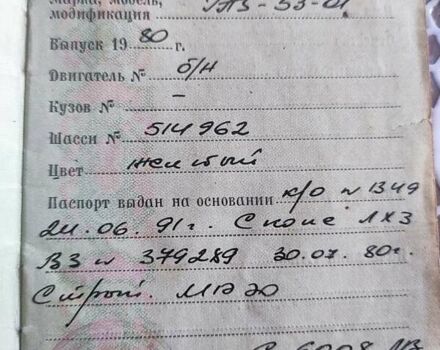 Марка, модель,
модификация ГАЗ-53-01
Выпуск 1980 г.
Двигатель № б/н
Кузов № –
Шасси № 514962
Цвет желтый
Паспорт выдан на основании к/о № 1349
24.06.91г. Списан ЛХЗ
ВЗ № 379289 30.07.80г.